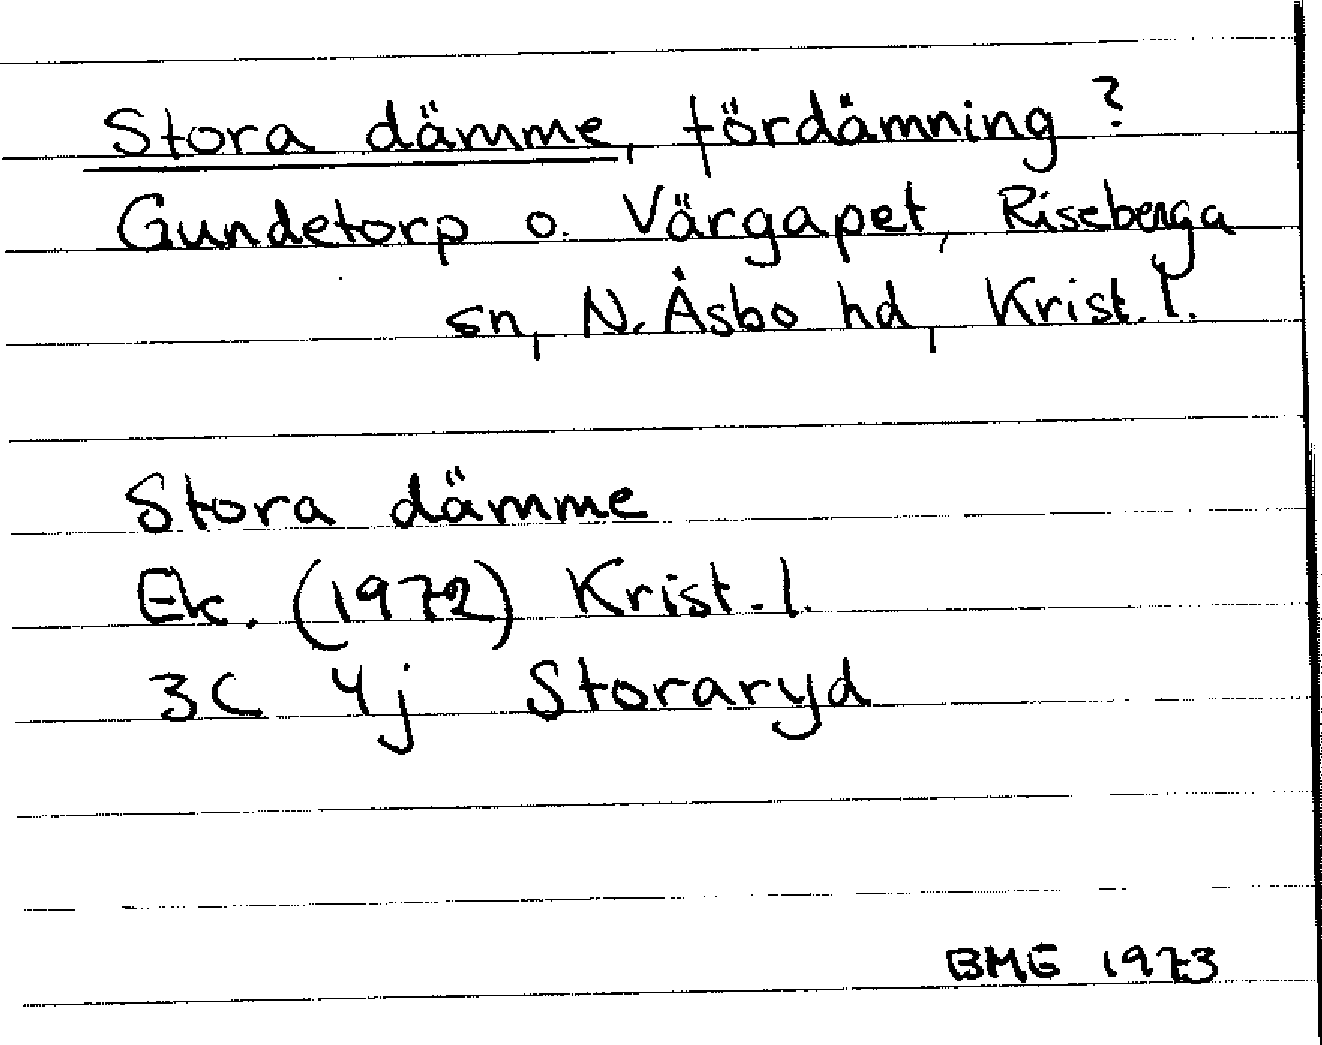 Stora dämme, fördämning?
Gundetorp o. Värgapet, Riseberga
sn, N. Åsbo hd, Krist. l.
Stora dämme
Ek. (1972) Krist. l.
3C 4j Storaryd
BMG 1973